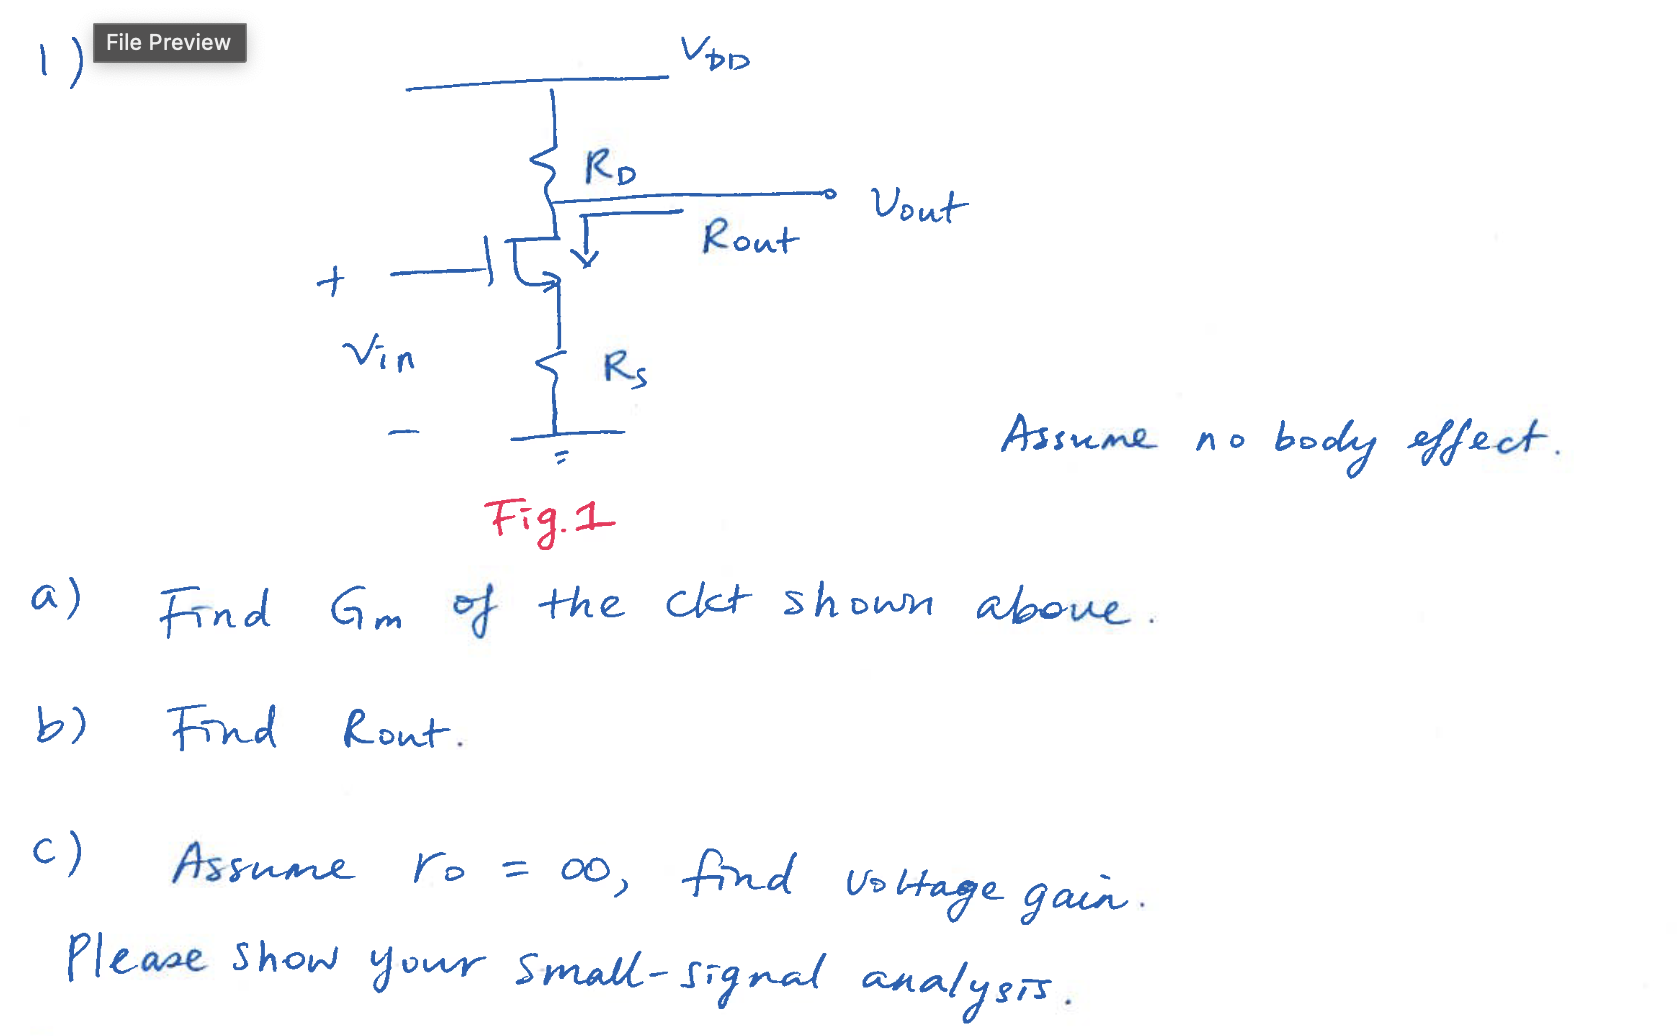 1)
File Preview
VDD
RD
Vout
Rout
+
Vin
Rs
-
Assume no body effect.
Fig.1
a) Find Gm of the ckt shown above.
b) Find Rout.
c) Assume ro = ∞, find voltage gain.
Please show your small-signal analysis.